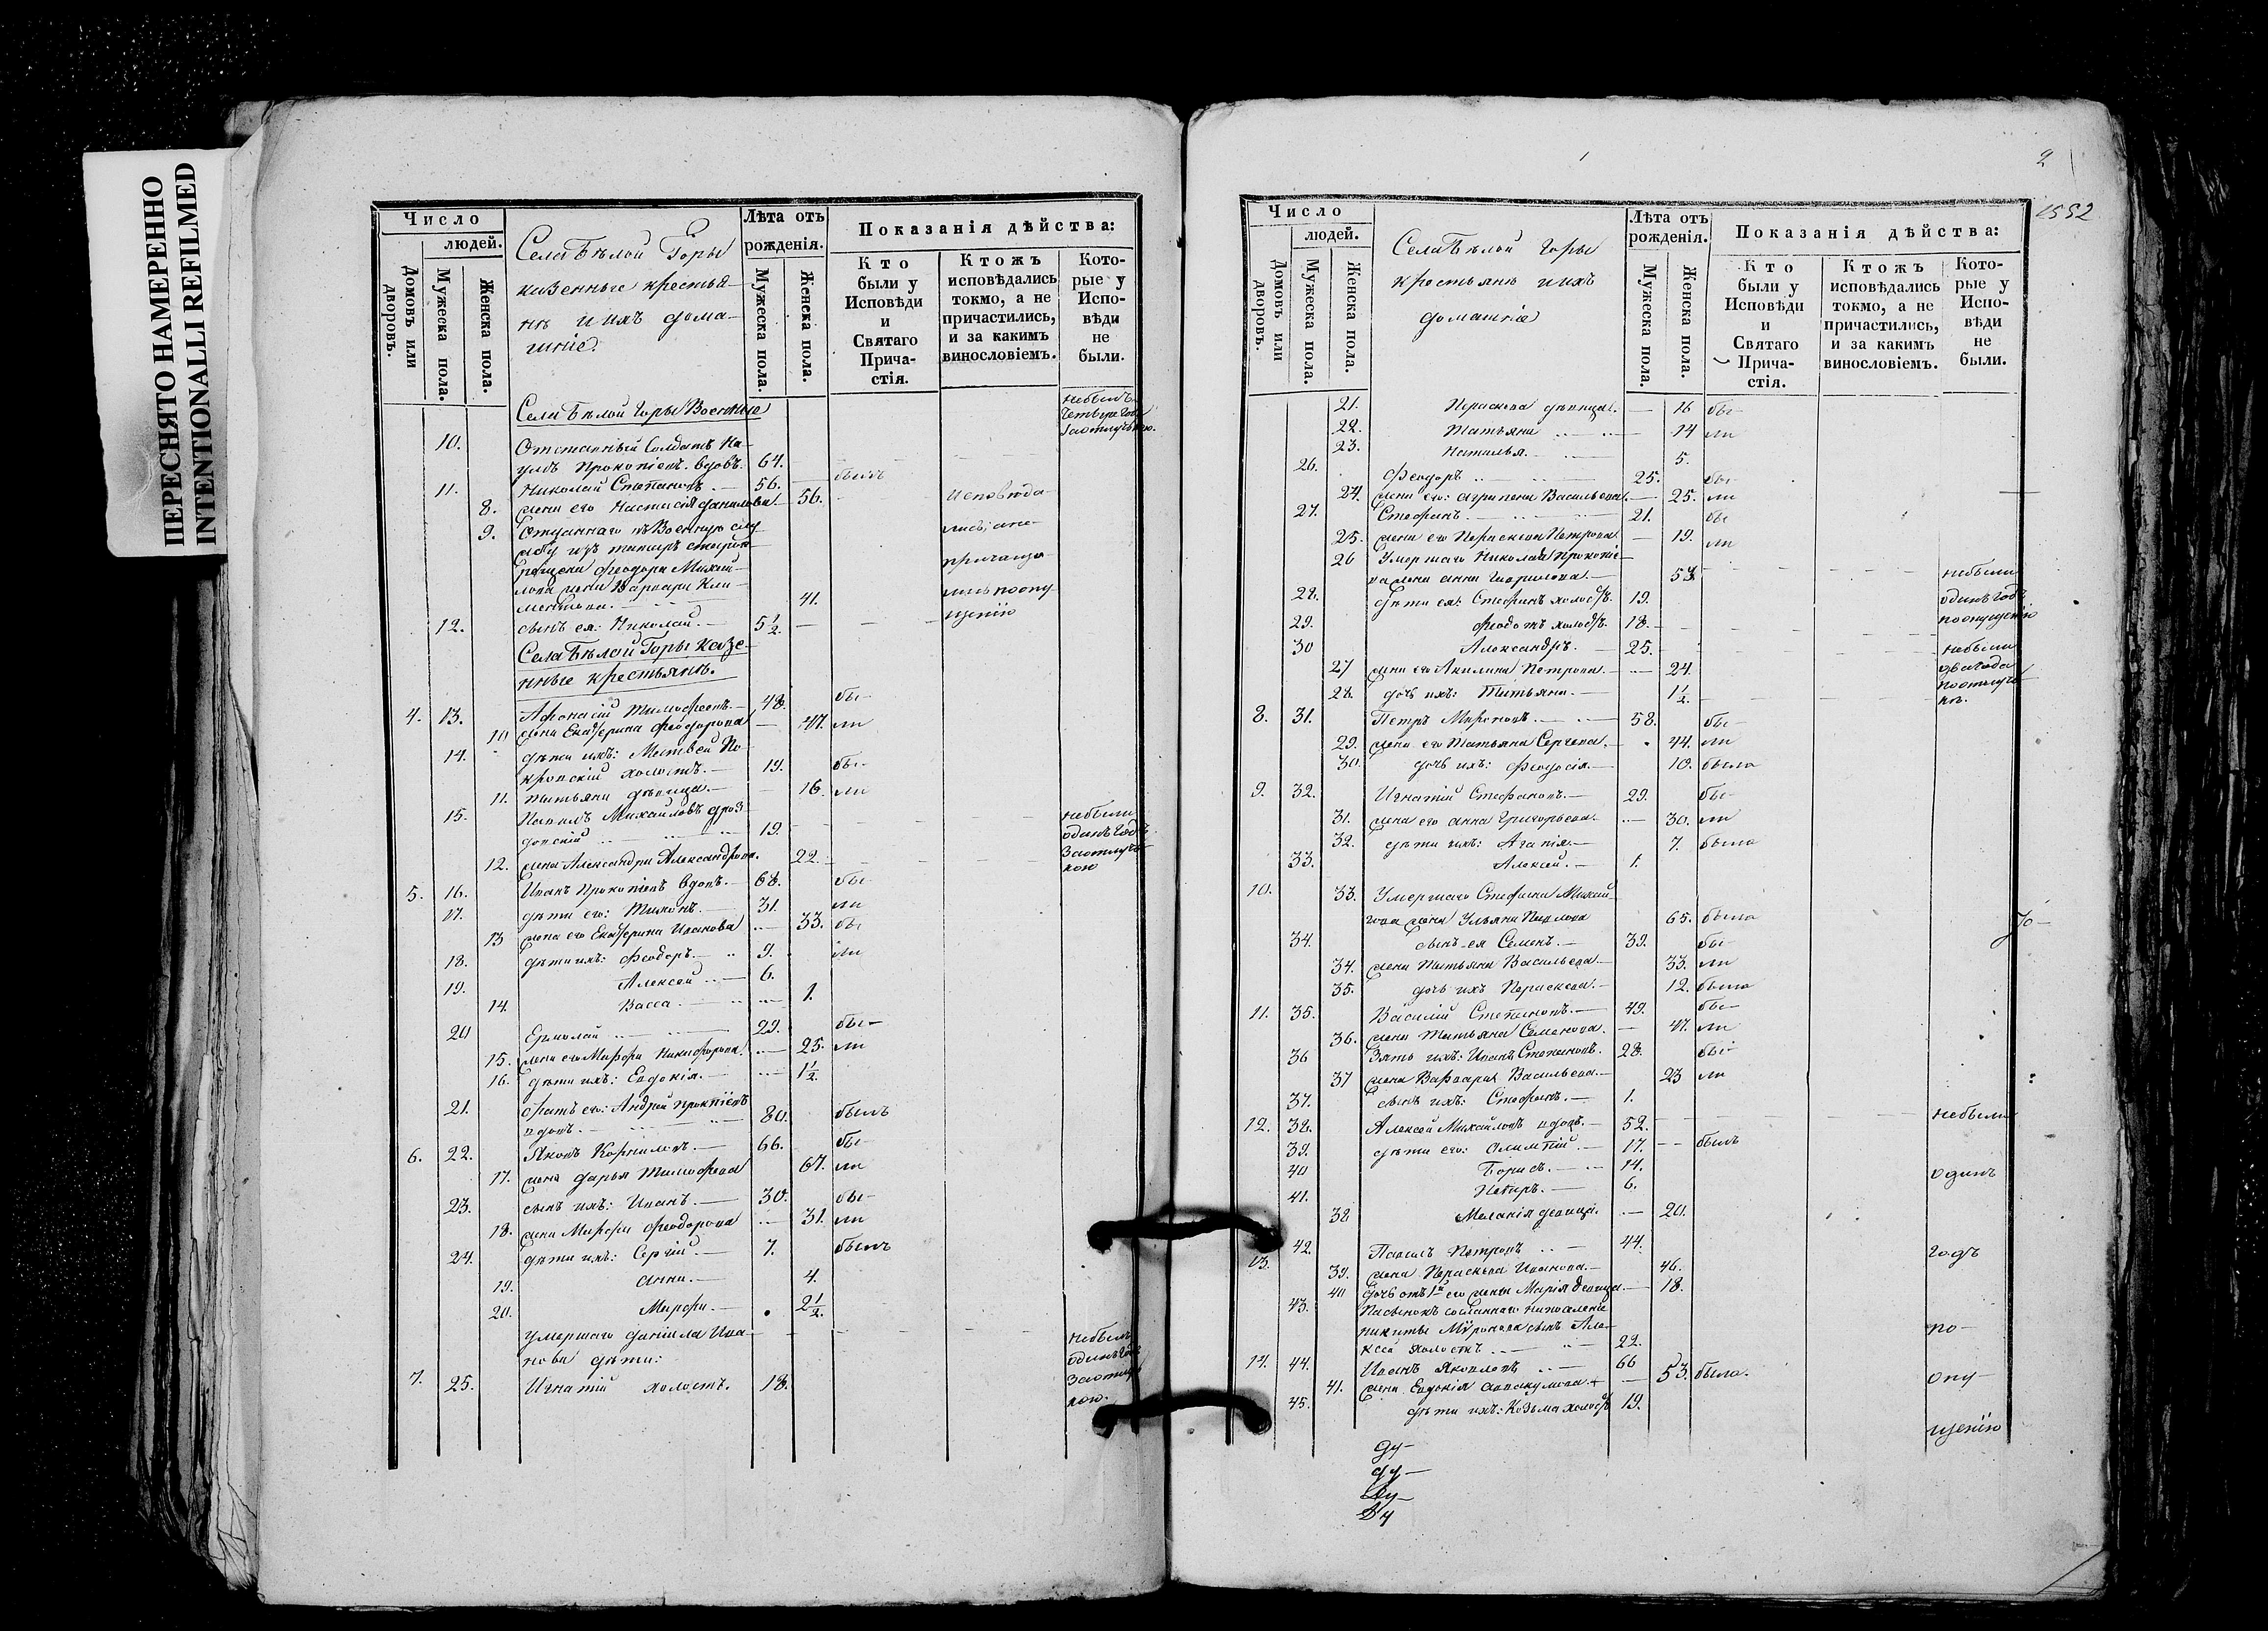 ПЕРЕСНЯТО НАМЕРЕННО
INTENTIONALLI REFILMED
Число
людей.
Домовъ или дворовъ.
Мужеска пола.
Женска пола.
Села Бѣлой Горы
казенные крестья-
не и ихъ дома-
шніе.
Лѣта отъ
рожденія.
Мужеска пола.
Женска пола.
Показанія дѣйства:
Кто
были у
Исповѣди
и
Святаго
Прича-
стія.
Ктожъ
исповѣдались
токмо, а не
причастились,
и за какимъ
винословіемъ.
Кото-
рые у
Испо-
вѣди
не
были.
Села Бѣлой Горы Военные
небылъ
10. Отставный Солдатъ На-
умъ Прокопіевъ. вдовъ. 64.
11. Николай Степановъ 56. былъ
8. жена его Настасія Данилова 56. исповѣда-
9. Отданнаго въ Военную слу-
лись, а не
Феодора Михай-
причаща-
лова жена Варвара Кли-
лись по опу-
ментова. 41.
щенію
12. сынъ ея: Николай. 5 1/2
Села Бѣлой Горы казе-
нные крестьяне.
4. 13. Афонасій Тимофеевъ. 48. бы-
10 жена Екатерина Феодорова 47. ли
14. дѣти ихъ: Матвей По-
кровскій холостъ. 19. бы-
11. Татьяна дѣвица. 16. ли
15. Павелъ Михайловъ Дроз-
довскій 19.
небыли
одинъ годъ
12. жена Александра Александрова. 22.
за отлуч-
кою
5. 16. Иванъ Прокопіевъ вдовъ. 68. бы-
17. дѣти его: Тихонъ. 31. ли
13 жена его Екатерина Иванова 33. бы
18. дѣти ихъ: Феодоръ. 9. ли
19. Алексей 6.
14. Васса. 1.
20 Ермолай 29. бы-
15. жена его Марфа Никифорова. 25. ли
16. дѣти ихъ: Евдокія. 1 1/2.
21. братъ его: Андрей Прокпіевъ
вдовъ. 80. былъ
6. 22. Яковъ Корниловъ. 66. бы-
17. жена Дарья Тимофеева 67. ли
23. сынъ ихъ: Иванъ. 30. бы-
18. жена Марфа Феодорова 31. ли
24. дѣти ихъ: Сергій. 7. былъ
19. Анна. 4.
20. Марфа. 2 1/2.
умершаго Даніила Ива-
небылъ
нова дѣти:
одинъ годъ
7. 25. Игнатій холостъ. 18.
за отлуч
кою.
2
1552
Число
людей.
Домовъ или дворовъ.
Мужеска пола.
Женска пола.
Села Бѣлой Горы
крестьяне и ихъ
домашніе
Лѣта отъ
рожденія.
Мужеска пола.
Женска пола.
Показанія дѣйства:
Кто
были у
Исповѣди
и
Святаго
Прича-
стія.
Ктожъ
исповѣдались
токмо, а не
причастились,
и за какимъ
винословіемъ.
Кото-
рые у
Испо-
вѣди
не
были.
21. Параскева дѣвица. 16 бы-
22. Татьяна 14 ли
23. Наталья. 5.
26. Феодоръ 25. бы-
24. жена его: Агрипена Васильева. 25. ли
27. Стефанъ. 21. бы
25. жена его Параскева Петрова. 19. ли
26 Умершаго Николая Прокопіе-
ва жена Анна Гаврилова. 53. небыли
28. дѣти ея: Стефанъ холостъ. 19. одинъ годъ
29. Феодотъ холостъ. 18. по опущенію
30 Александръ. 25. небыли
27 жена его Акилина Петрова. 24. два года
28. дочь ихъ: Татьяна. 1 1/2. по отлуч-
кѣ.
8. 31. Петръ Мироновъ. 58. бы-
29. жена его Татьяна Сергеева. 44. ли
30. дочь ихъ: Феодосія. 10. была
9. 32. Игнатій Стефановъ. 29. бы-
31. жена его Анна Григорьева. 30. ли
32. дѣти ихъ: Агапія. 7. была
33. Алексей. 1.
10. 33. Умершаго Стефана Михай-
лова жена Ульяна Павлова 65. была
34. сынъ ея Семенъ. 39. бы-
34. жена Татьяна Васильева. 33. ли
35. дочь ихъ Параскева. 12. была
11. 35. Василій Степановъ. 49. бы-
36. жена Татьяна Семенова. 47. ли
36 Зять ихъ: Иванъ Степановъ. 28. бы-
37 жена Варвара Васильева. 23 ли
37. сынъ ихъ: Стефанъ. 1.
12. 38. Алексей Михайловъ вдовъ. 52. небыли
39. дѣти его: Олимпій. 17. былъ
40 Борисъ. 14. одинъ
41. Петръ. 6.
38 Меланія девица. 20.
13. 42. Павелъ Петровъ 44. годъ
39. жена Параскева Иванова. 46.
40 дочь отъ 1й его жены Марія девица 18.
43. Пасынокъ сосланнаго на поселеніе
Никиты Миронова сынъ Але- по-
ксей холостъ 22.
14. 44. Иванъ Яковлевъ 66
41. жена Евдокія Аввакумова. 53. была. опу-
45. дѣти ихъ: Козьма холостъ 19.
щенію
Ду-
ду-
Ду-
Ду